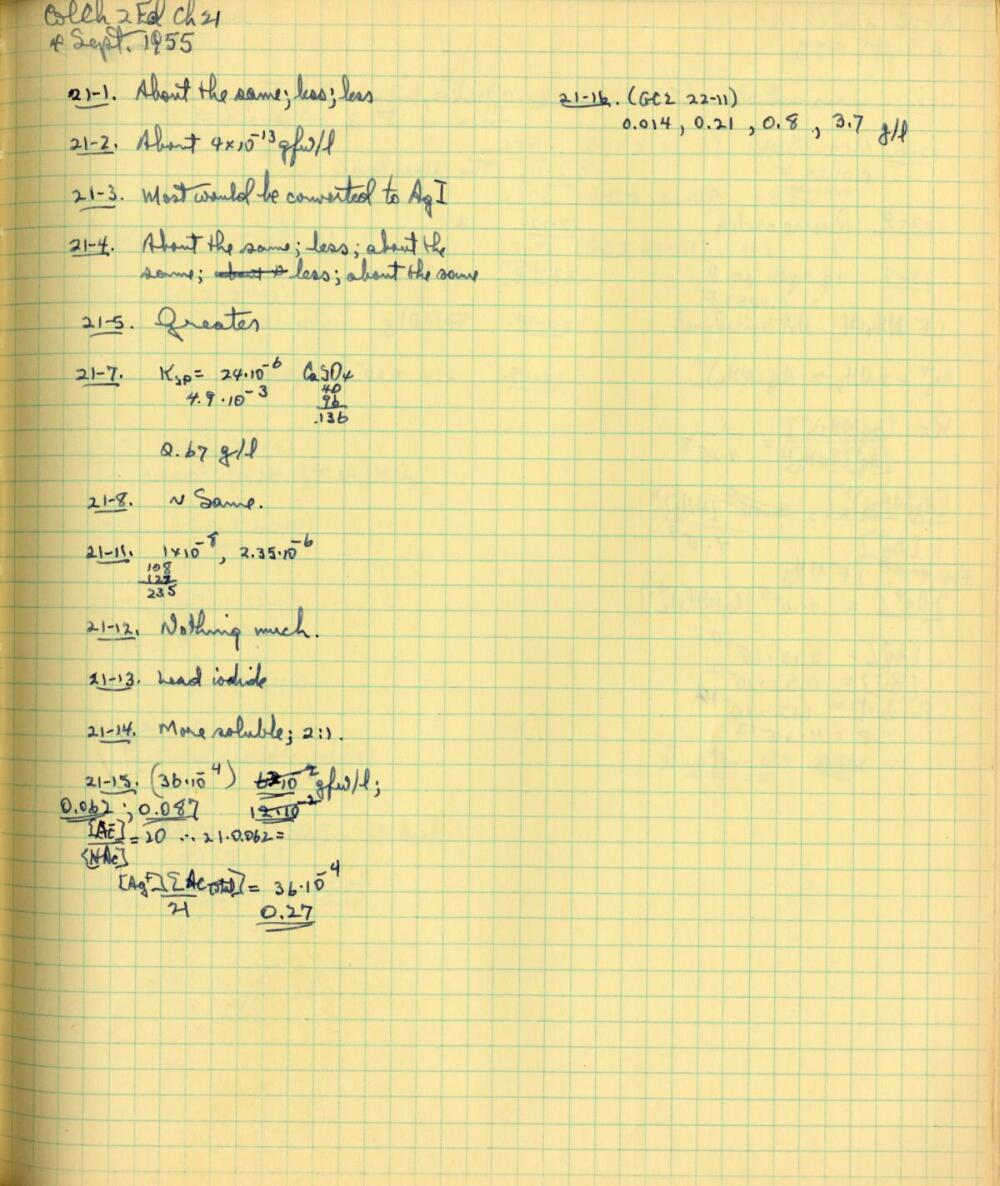 ColCh 2Ed Ch 21
Sept. 1955
21-1. About the same; less; less
21-2. About 4×10⁻¹³ gfw/l
21-3. Most would be converted to AgI
21-4. About the same; less; about the
same; less; about the same
21-5. Greater
21-7. Ksp = 24·10⁻⁶ CaSO₄
4.9·10⁻³ 40
96
136
0.67 g/l
21-8. ~ Same.
21-11. 1×10⁻⁸, 2.35·10⁻⁶
108
127
235
21-12. Nothing much.
21-13. Lead iodide
21-14. More soluble; 2:1.
21-15. (36·10⁻⁴) 6.2·10⁻² gfw/l;
0.062; 0.087 12·10⁻²
[Ac⁻]
= 20 ∴ 21·0.062=
[HAc]
[Ag⁺][ΣAc total] = 36·10⁻⁴
21 0.27
21-16. (GC2 22-11)
0.014, 0.21, 0.8, 3.7 g/l